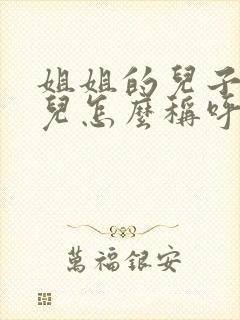 姐姐的兒子
兒怎麼稱呼
萬福銀安